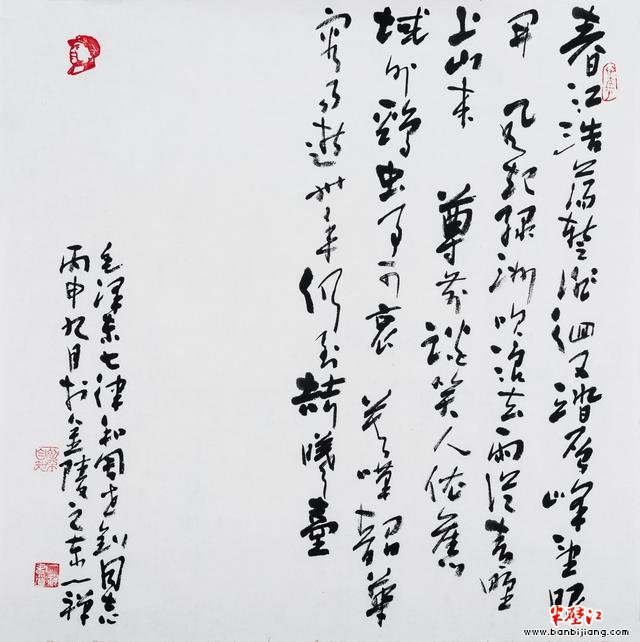 春江浩荡暂徘徊又踏层峰望眼
开风起绿洲吹浪去雨从青野
上山来尊前谈笑人依旧
域外鸡虫事可哀莫叹韶华
容易逝卅年仍到赫曦臺
毛泽东七律和周世钊同志
丙申九月于金陵之东一禅
半壁江
www.banbijiang.com